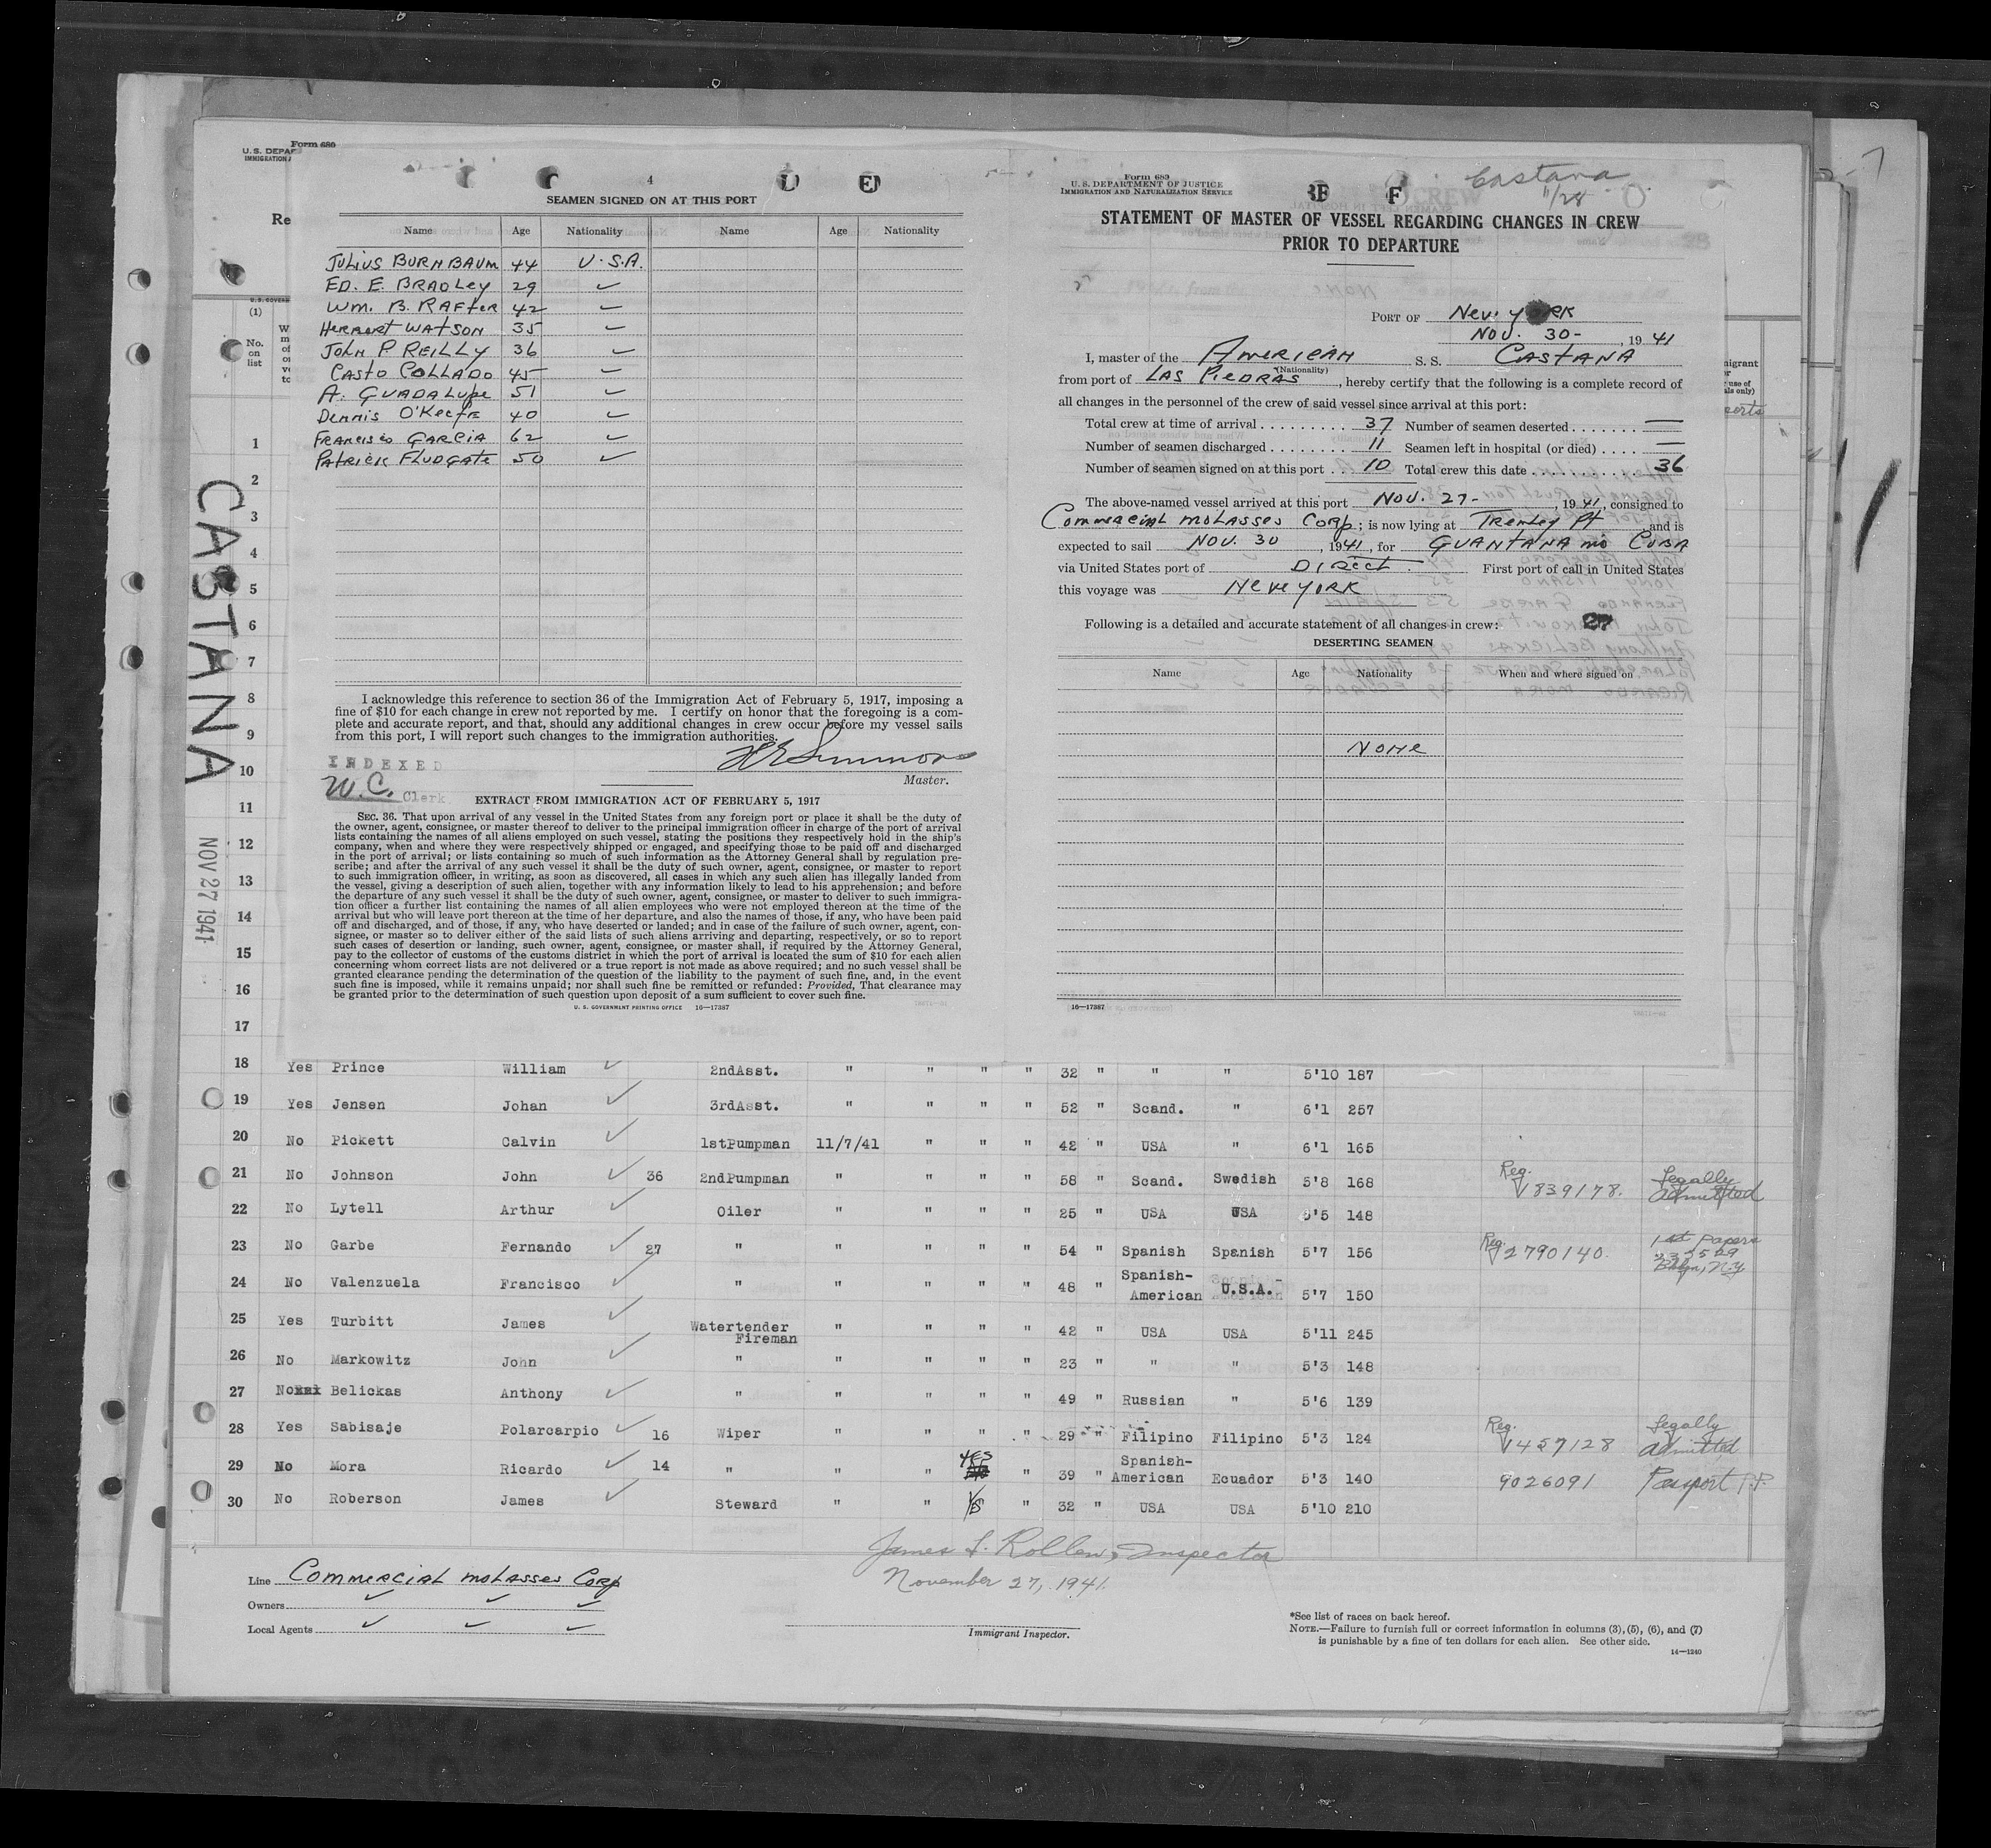 U. S. DEPAR
IMMIGRATION A
Form 689
Re
(1)
No.
on
list
4
SEAMEN SIGNED ON AT THIS PORT
Name Age Nationality Name Age Nationality
JULIUS BURNBAUM 44 U.S.A.
ED. E. BRADLEY 29 ✓
WM. B. RAFTER 42 ✓
HERBERT WATSON 35 ✓
JOHN P REILLY 36 ✓
CASTO COLLADO 45 ✓
A. GUADALUPE 51 ✓
DENNIS O'KEEFE 40 ✓
FRANCISCO GARCIA 62 ✓
PATRICK FLUDGATE 50 ✓
I acknowledge this reference to section 36 of the Immigration Act of February 5, 1917, imposing a
fine of $10 for each change in crew not reported by me. I certify on honor that the foregoing is a com-
plete and accurate report, and that, should any additional changes in crew occur before my vessel sails
from this port, I will report such changes to the immigration authorities.
INDEXED
W.C. Clerk
Simmons
Master.
EXTRACT FROM IMMIGRATION ACT OF FEBRUARY 5, 1917
SEC. 36. That upon arrival of any vessel in the United States from any foreign port or place it shall be the duty of
the owner, agent, consignee, or master thereof to deliver to the principal immigration officer in charge of the port of arrival
lists containing the names of all aliens employed on such vessel, stating the positions they respectively hold in the ship's
company, when and where they were respectively shipped or engaged, and specifying those to be paid off and discharged
in the port of arrival; or lists containing so much of such information as the Attorney General shall by regulation pre-
scribe; and after the arrival of any such vessel it shall be the duty of such owner, agent, consignee, or master to report
to such immigration officer, in writing, as soon as discovered, all cases in which any such alien has illegally landed from
the vessel, giving a description of such alien, together with any information likely to lead to his apprehension; and before
the departure of any such vessel it shall be the duty of such owner, agent, consignee, or master to deliver to such immigra-
tion officer a further list containing the names of all alien employees who were not employed thereon at the time of the
arrival but who will leave port thereon at the time of her departure, and also the names of those, if any, who have been paid
off and discharged, and of those, if any, who have deserted or landed; and in case of the failure of such owner, agent, con-
signee, or master so to deliver either of the said lists of such aliens arriving and departing, respectively, or so to report
such cases of desertion or landing, such owner, agent, consignee, or master shall, if required by the Attorney General,
pay to the collector of customs of the customs district in which the port of arrival is located the sum of $10 for each alien
concerning whom correct lists are not delivered or a true report is not made as above required; and no such vessel shall be
granted clearance pending the determination of the question of the liability to the payment of such fine, and, in the event
such fine is imposed, while it remains unpaid; nor shall such fine be remitted or refunded: Provided, That clearance may
be granted prior to the determination of such question upon deposit of a sum sufficient to cover such fine.
U. S. GOVERNMENT PRINTING OFFICE 16—17387
Form 689
U. S. DEPARTMENT OF JUSTICE
IMMIGRATION AND NATURALIZATION SERVICE
Castana
11/28
STATEMENT OF MASTER OF VESSEL REGARDING CHANGES IN CREW
PRIOR TO DEPARTURE
PORT OF New York
NOV. 30- , 19 41
I, master of the AMERICAN S. S. CASTANA
(Nationality)
from port of LAS PIEDRAS, hereby certify that the following is a complete record of
all changes in the personnel of the crew of said vessel since arrival at this port:
Total crew at time of arrival 37 Number of seamen deserted —
Number of seamen discharged 11 Seamen left in hospital (or died) —
Number of seamen signed on at this port 10 Total crew this date 36
The above-named vessel arrived at this port NOV. 27- , 19 41, consigned to
COMMERCIAL MOLASSES CORP.; is now lying at TREMLEY PT and is
expected to sail NOV. 30 , 1941, for GUANTANAMO CUBA
via United States port of DIRECT. First port of call in United States
this voyage was NEW YORK
Following is a detailed and accurate statement of all changes in crew: 27
DESERTING SEAMEN
Name Age Nationality When and where signed on
NONE
16—17387
CASTANA
NOV 27 1941
1
2
3
4
5
6
7
8
9
10
11
12
13
14
15
16
17
18 Yes Prince William ✓ 2ndAsst. " " " " 32 " " " 5'10 187
19 Yes Jensen Johan ✓ 3rdAsst. " " " " 52 " Scand. " 6'1 257
20 No Pickett Calvin ✓ 1stPumpman 11/7/41 " " " 42 " USA " 6'1 165
21 No Johnson John ✓ 36 2ndPumpman " " " " 58 " Scand. Swedish 5'8 168 Reg. V839178. Legally admitted
22 No Lytell Arthur ✓ Oiler " " " " 25 " USA USA 5'5 148
23 No Garbe Fernando ✓ 27 " " " " " 54 " Spanish Spanish 5'7 156 Reg. 2790140. 1st Papers 232529 Bklyn, N.Y.
24 No Valenzuela Francisco ✓ " " " " " 48 " Spanish-American U.S.A. 5'7 150
25 Yes Turbitt James ✓ Watertender Fireman " " " " 42 " USA USA 5'11 245
26 No Markowitz John ✓ " " " " " 23 " " " 5'3 148
27 No Belickas Anthony ✓ " " " " " 49 " Russian " 5'6 139
28 Yes Sabisaje Polarcarpio ✓ 16 Wiper " " " " 29 " Filipino Filipino 5'3 124 Reg. V457128 Legally admitted
29 No Mora Ricardo ✓ 14 " " " YES " 39 " Spanish-American Ecuador 5'3 140 9026091 Passport P.P.
30 No Roberson James ✓ Steward " " " 32 " USA USA 5'10 210
James L. Rollen, Inspector
November 27, 1941.
Immigrant Inspector.
Line COMMERCIAL MOLASSES CORP
Owners ✓ ✓ ✓
Local Agents ✓ ✓ ✓
*See list of races on back hereof.
NOTE.—Failure to furnish full or correct information in columns (3), (5), (6), and (7)
is punishable by a fine of ten dollars for each alien. See other side.
14—1240